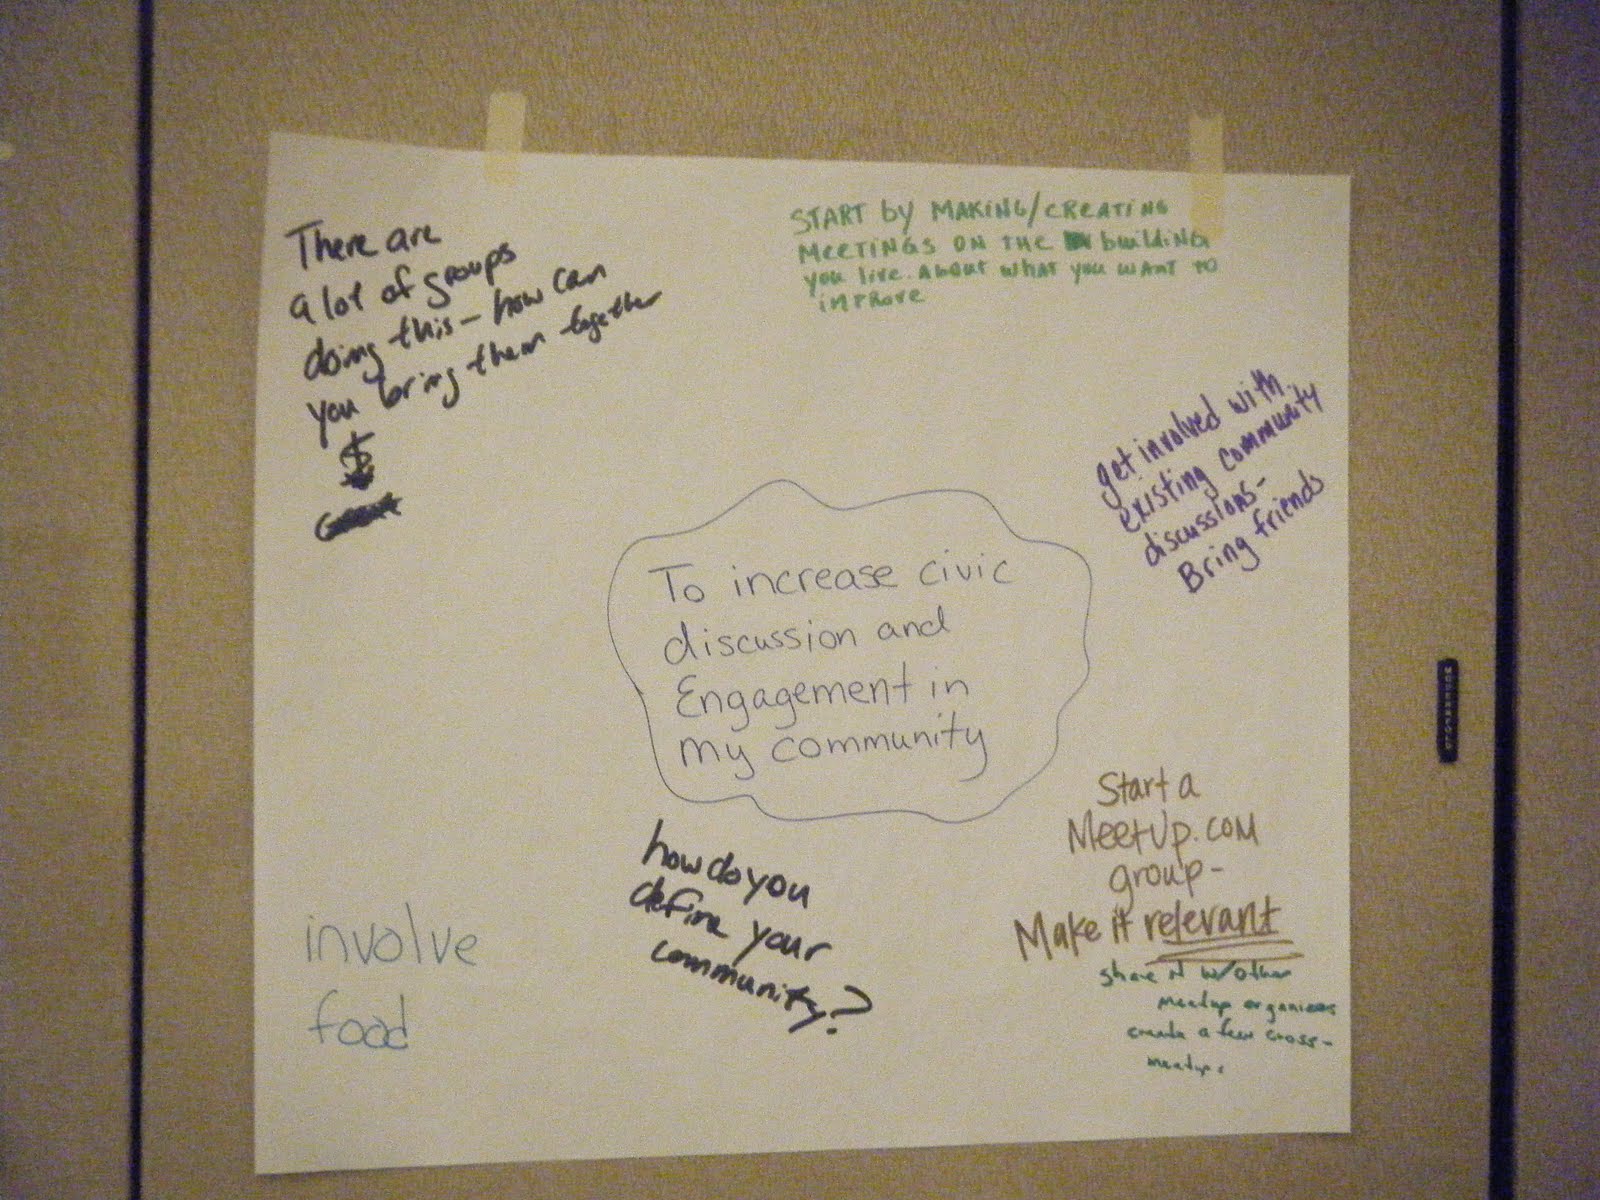 There are
a lot of groups
doing this - how can
you bring them together
$
START by MAKING/CREATING
MEETINGS ON THE building
you live. About what you want to
improve
get involved with
existing community
discussions-
Bring friends
To increase civic
discussion and
Engagement in
my community
how do you
define your
community?
involve
food
Start a
MeetUp.com
group-
Make it relevant
share it w/other
meetup organizers
create a few cross-
meetups